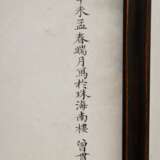 未孟春端月寫於珠海南樓 曾